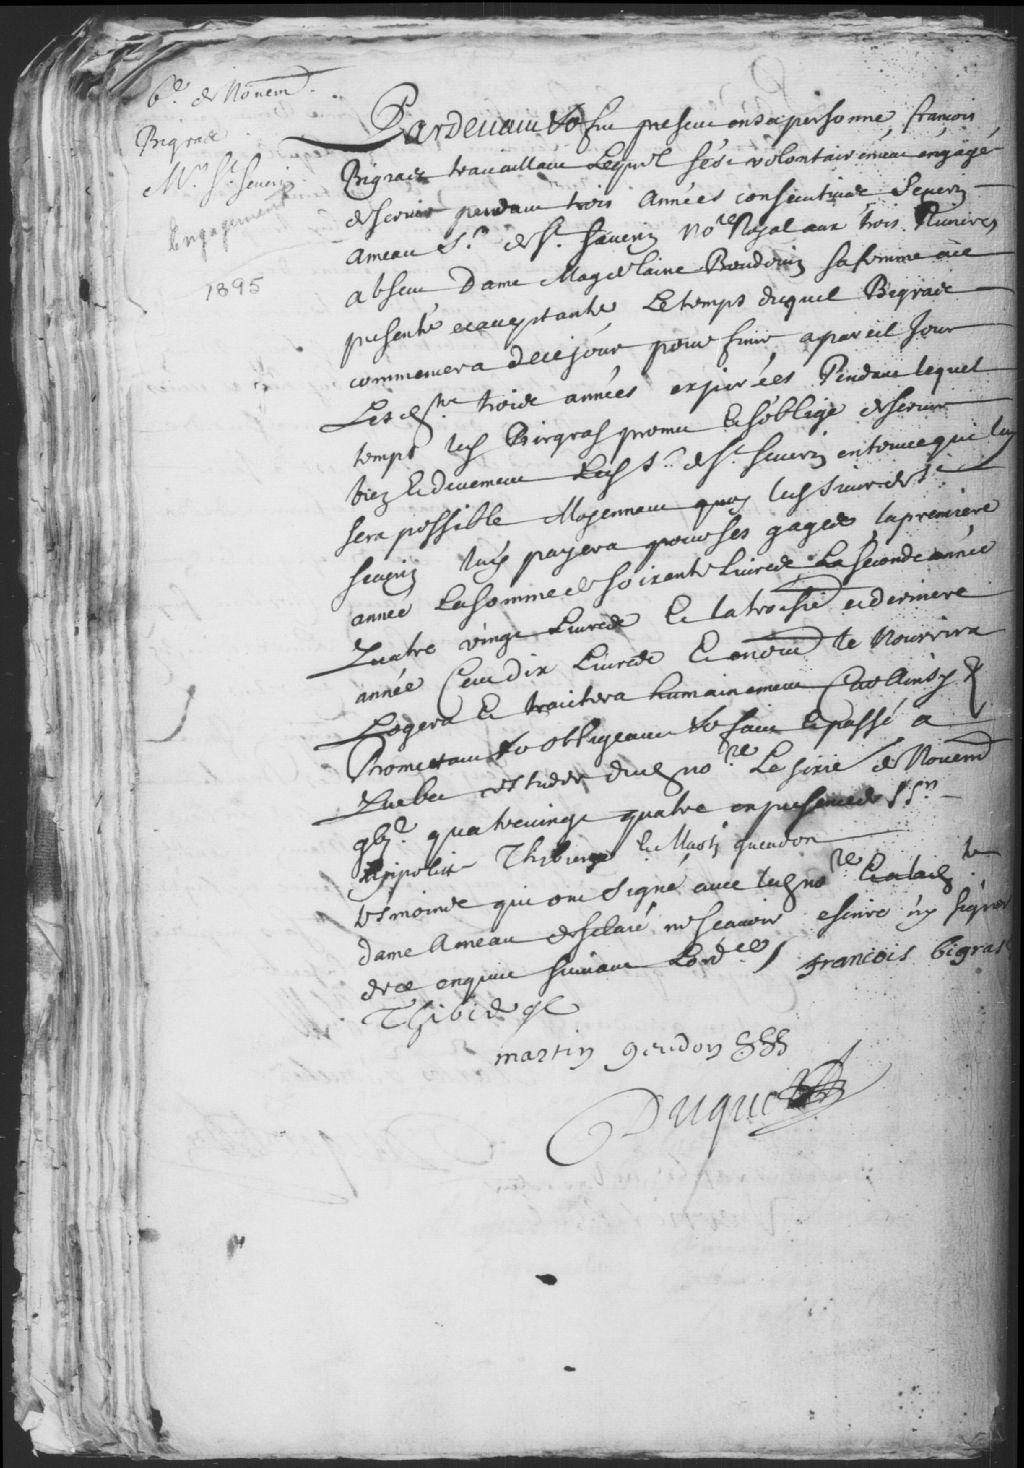 6e de Novemb.
Bigras
Mr St Severin
Engagement
1895
Pardevant &a fut present en sa personne francois
Bigras travaillant Lequel s'est volontairement engagé
de servir pendant trois Années consecutives Severin
Ameau Sr de St Severin nore Royal aux trois Rivieres
absent Dame Magdelaine Baudouin sa femme a ce
presente et acceptante Le temps duquel Bigras
commencera de ce jour pour finir a pareil Jour
Lesd trois années expirées Pendant lequel
temps led Birgras promet & s'oblige de servir
bien & deuement Led Sr de St Severin en tout ce qui luy
sera possible Moyennant quoy led sieur de St
Severin luy payera pour ses gages la premiere
année La somme de soixante Livres La seconde année
Quatre vingt Livres Et la troisie et derniere
année Cent dix Livres Et outre le Nourrira
Logera Et traictera humainement Car Ainsy &
Promettant &a obligeant &a fait & passé a
Quebec estude dud nore Le sixie de Novemb
gbj quatrevingt quatre en presence de Srs
hipolite Thibierge & Martin gueudon
tesmoins qui ont signé avec led nore Et a lad
dame Ameau desclaré ne scavoir escrire ny signer
de ce enquise suivant L'ordce francois bigras
Thibierge
martin geudon
Duquet